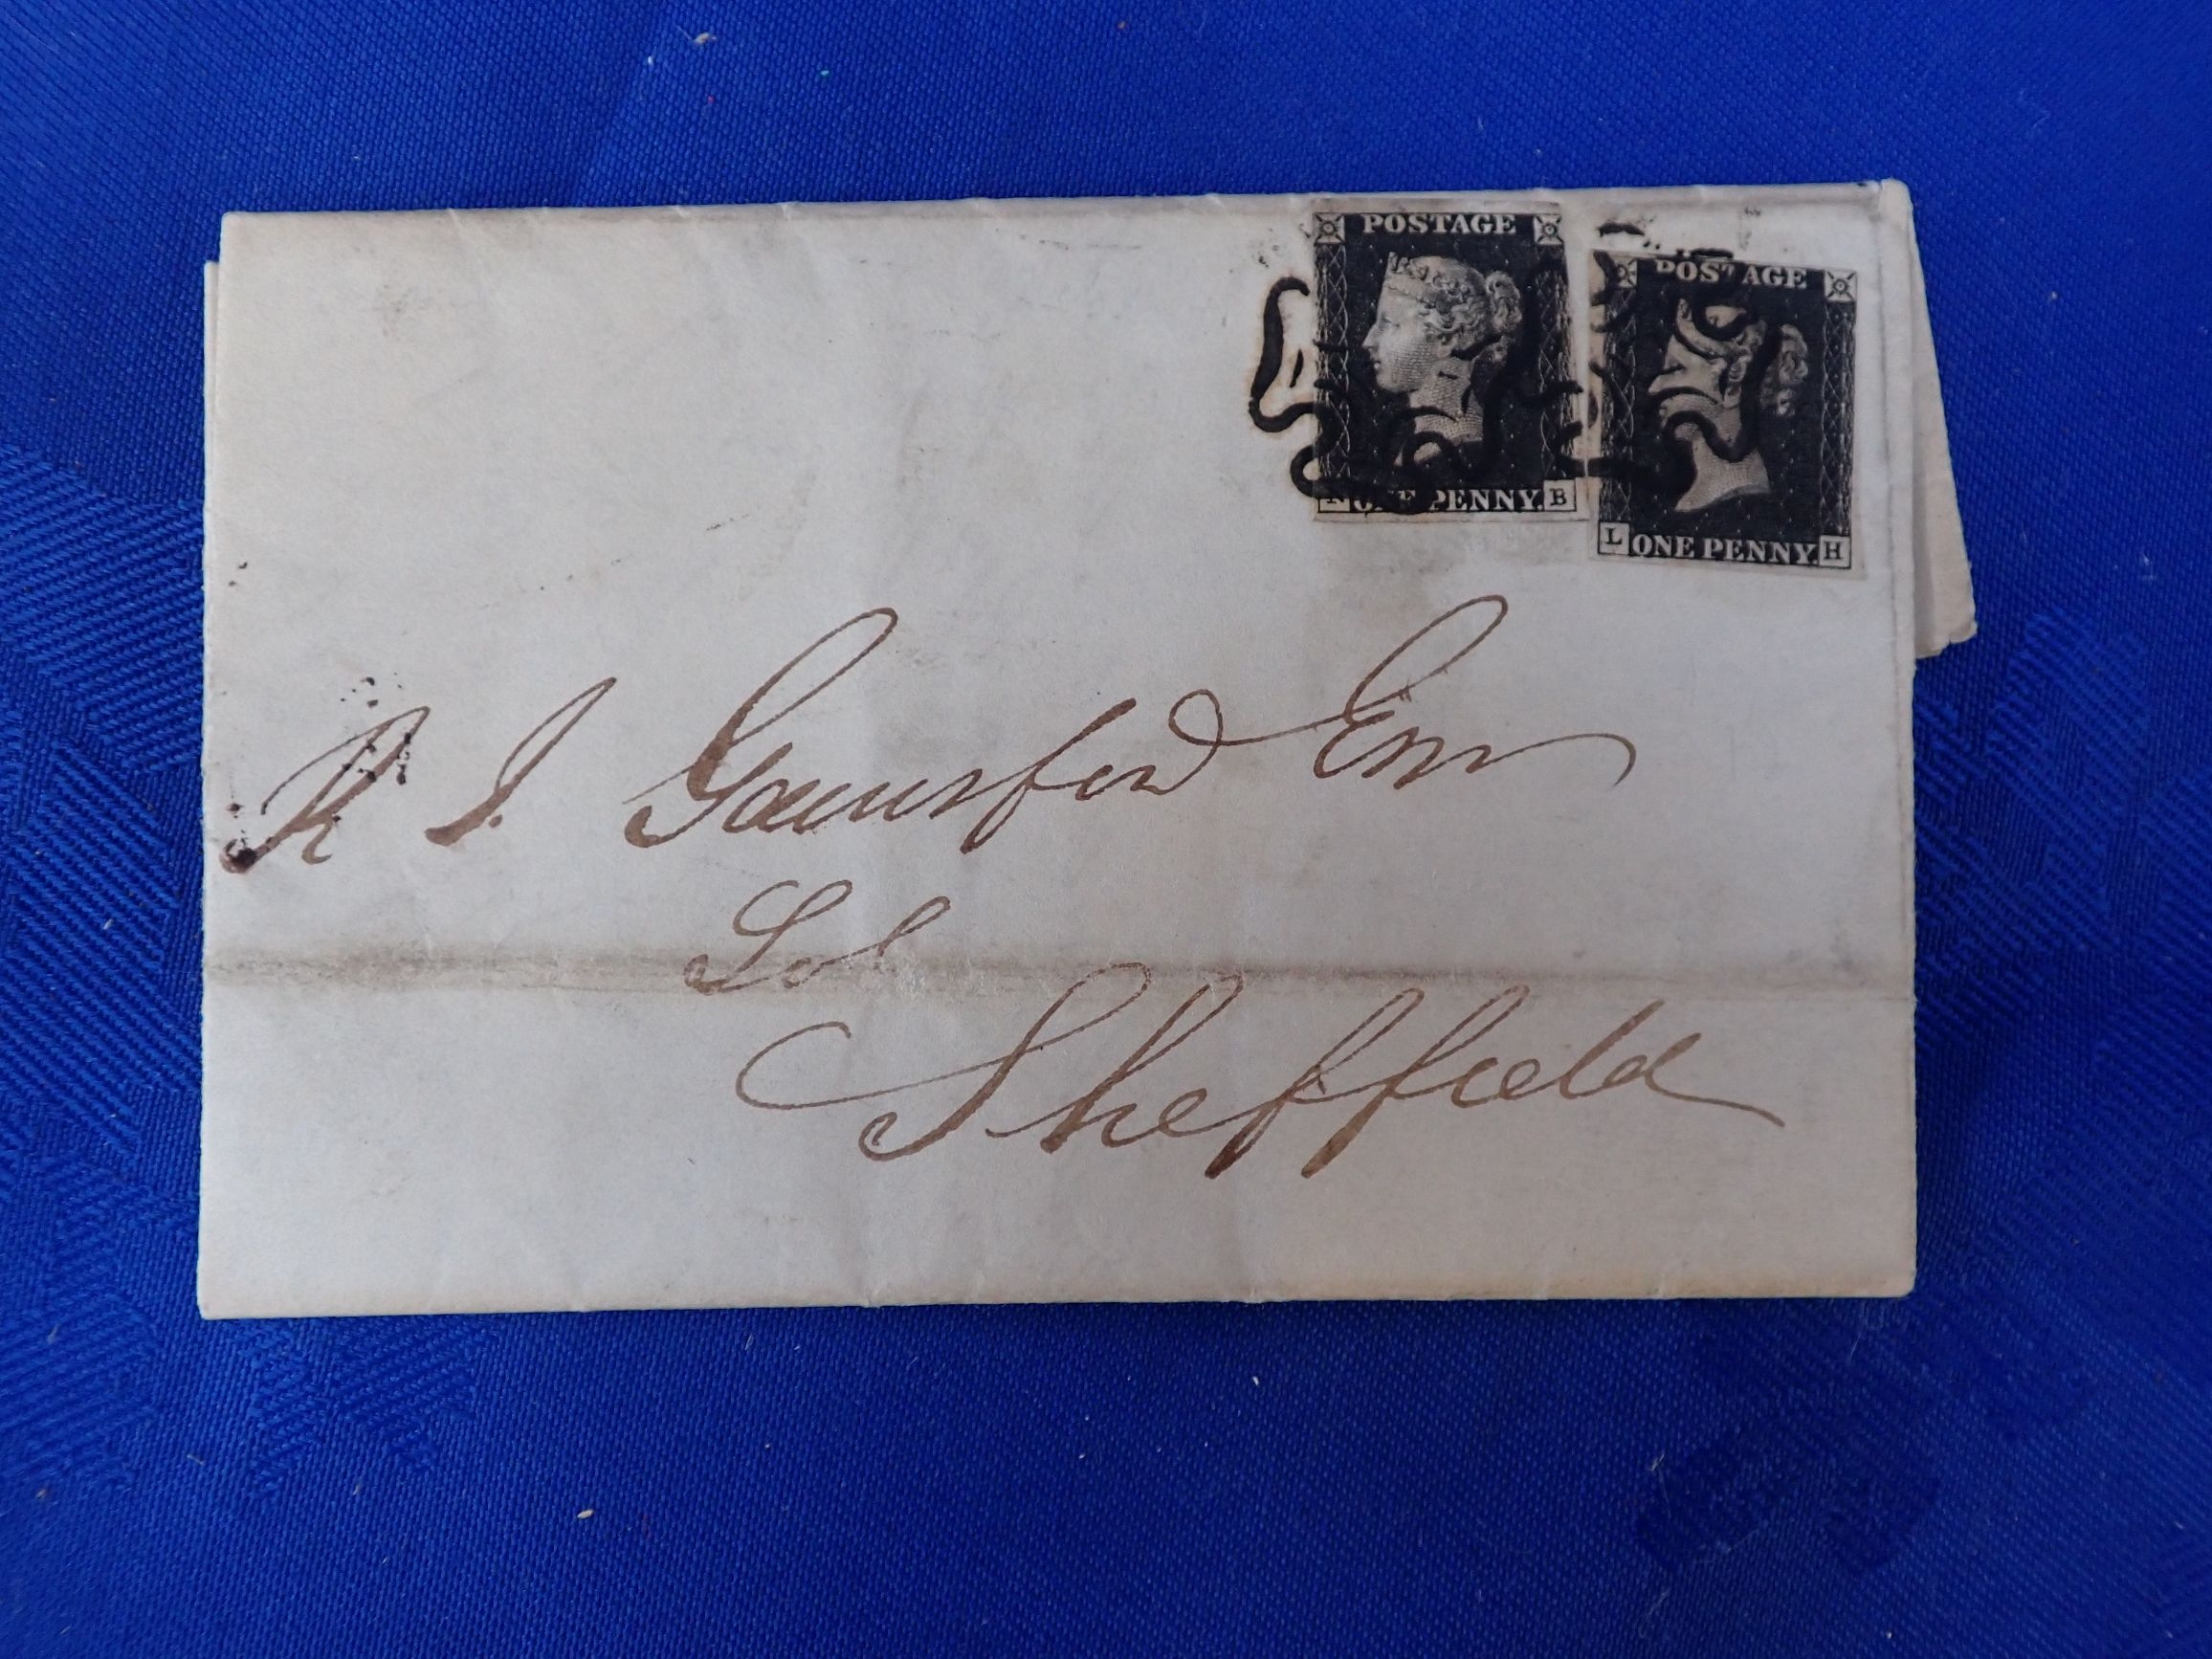 POSTAGE
ONE PENNY. B
POSTAGE
L ONE PENNY. H
R J Gainsford Esq
Sol
Sheffield